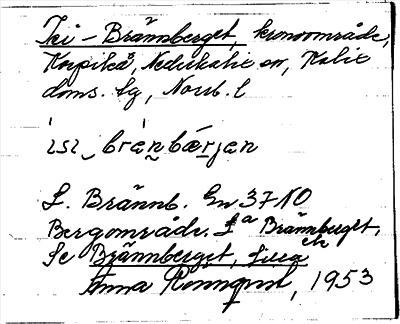 Isi-Brännberget, kronoområde,
Korpilså, Nederkalix sn, Kalix
doms. lg, Norrb. l
ɩsɩ brànbærjan
L. Brännb. En 37 NO
Bergområde. Lª Brännberget,
Se Brännberget, Lilla etc
Anna Rönnqvist, 1953